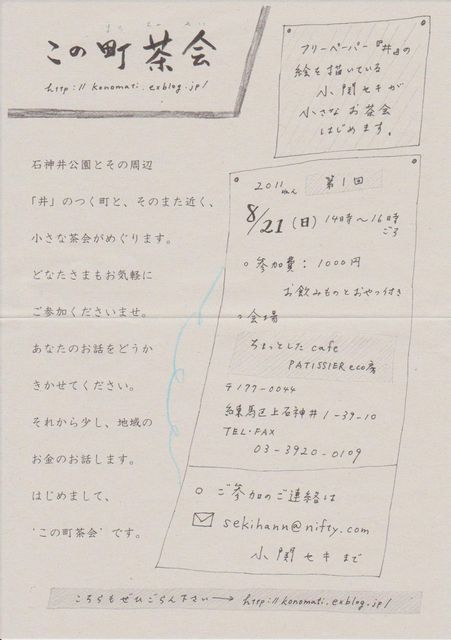 この町茶会
http://konomati.exblog.jp/
フリーペーパー『井』の
絵を描いている
小関セキが
小さなお茶会
はじめます。
石神井公園とその周辺
「井」のつく町と、そのまた近く、
小さな茶会がめぐります。
どなたさまもお気軽に
ご参加くださいませ。
あなたのお話をどうか
きかせてください。
それから少し、地域の
お金のお話します。
はじめまして、
'この町茶会' です。
2011 第1回
8/21(日) 14時〜16時
ごろ
○ 参加費:1000円
お飲みものとおやつ付き
○ 会場
ちょっとした cafe
PATISSIER eco房
〒177-0044
練馬区上石神井1-39-10
TEL・FAX
03-3920-0109
○ ご参加のご連絡は
sekihann@nifty.com
小関セキまで
こちらもぜひごらん下さい→ http://konomati.exblog.jp/